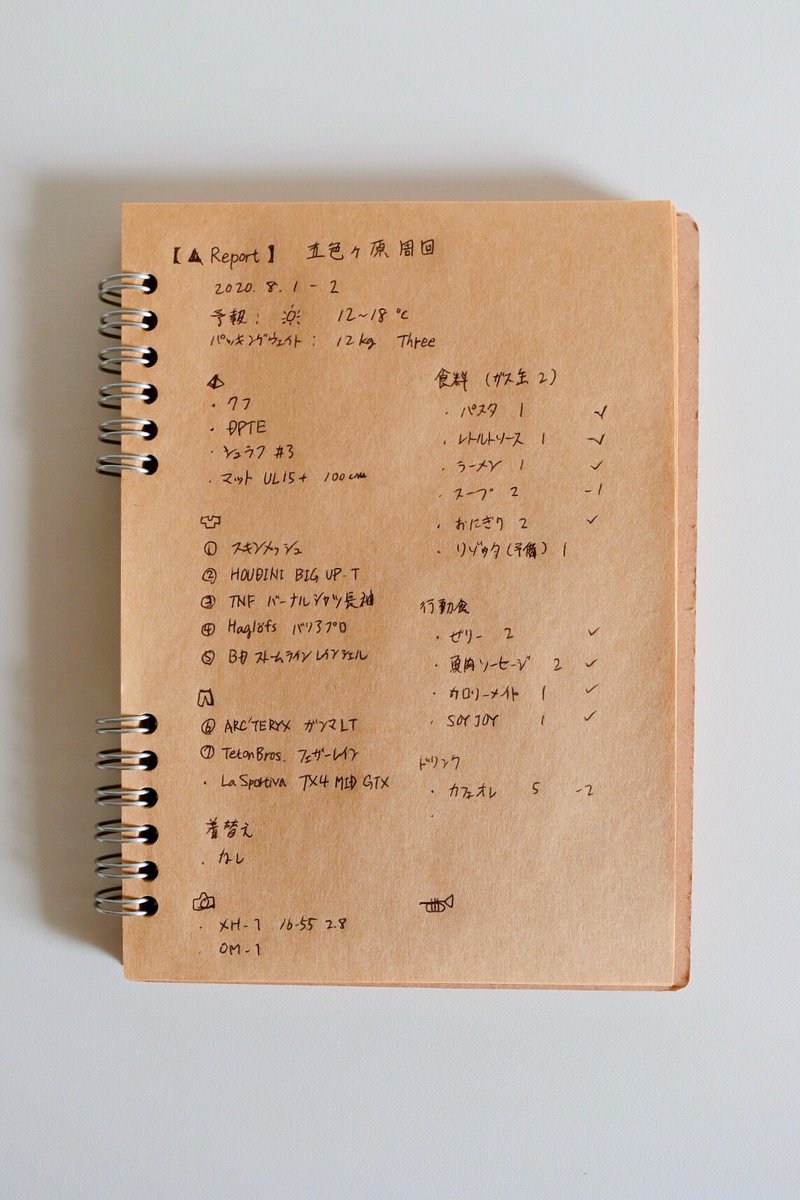 【▲ Report】 五色ヶ原 周回
2020. 8. 1 - 2
予報: 12~18 ℃
パッキングウェイト: 12kg Three
・クフ
・DPTE
・シュラフ #3
・マット UL15+ 100cm
① スキンメッシュ
② HOUDINI BIG UP-T
③ TNF バーナルシャツ長袖
④ Haglöfs バリアプロ
⑤ BD ストームラインレインシェル
⑥ ARC'TERYX ガンマLT
⑦ TetonBros. フェザーレイン
・La Sportiva TX4 MID GTX
着替え
・なし
・XH-1 16-55 2.8
・OM-1
食料 (ガス缶 2)
・パスタ 1 ✓
・レトルトソース 1 ✓
・ラーメン 1 ✓
・スープ 2 -1
・おにぎり 2 ✓
・リゾッタ(予備) 1
行動食
・ゼリー 2 ✓
・魚肉ソーセージ 2 ✓
・カロリーメイト 1 ✓
・SOYJOY 1 ✓
ドリンク
・カフェオレ 5 -2
・